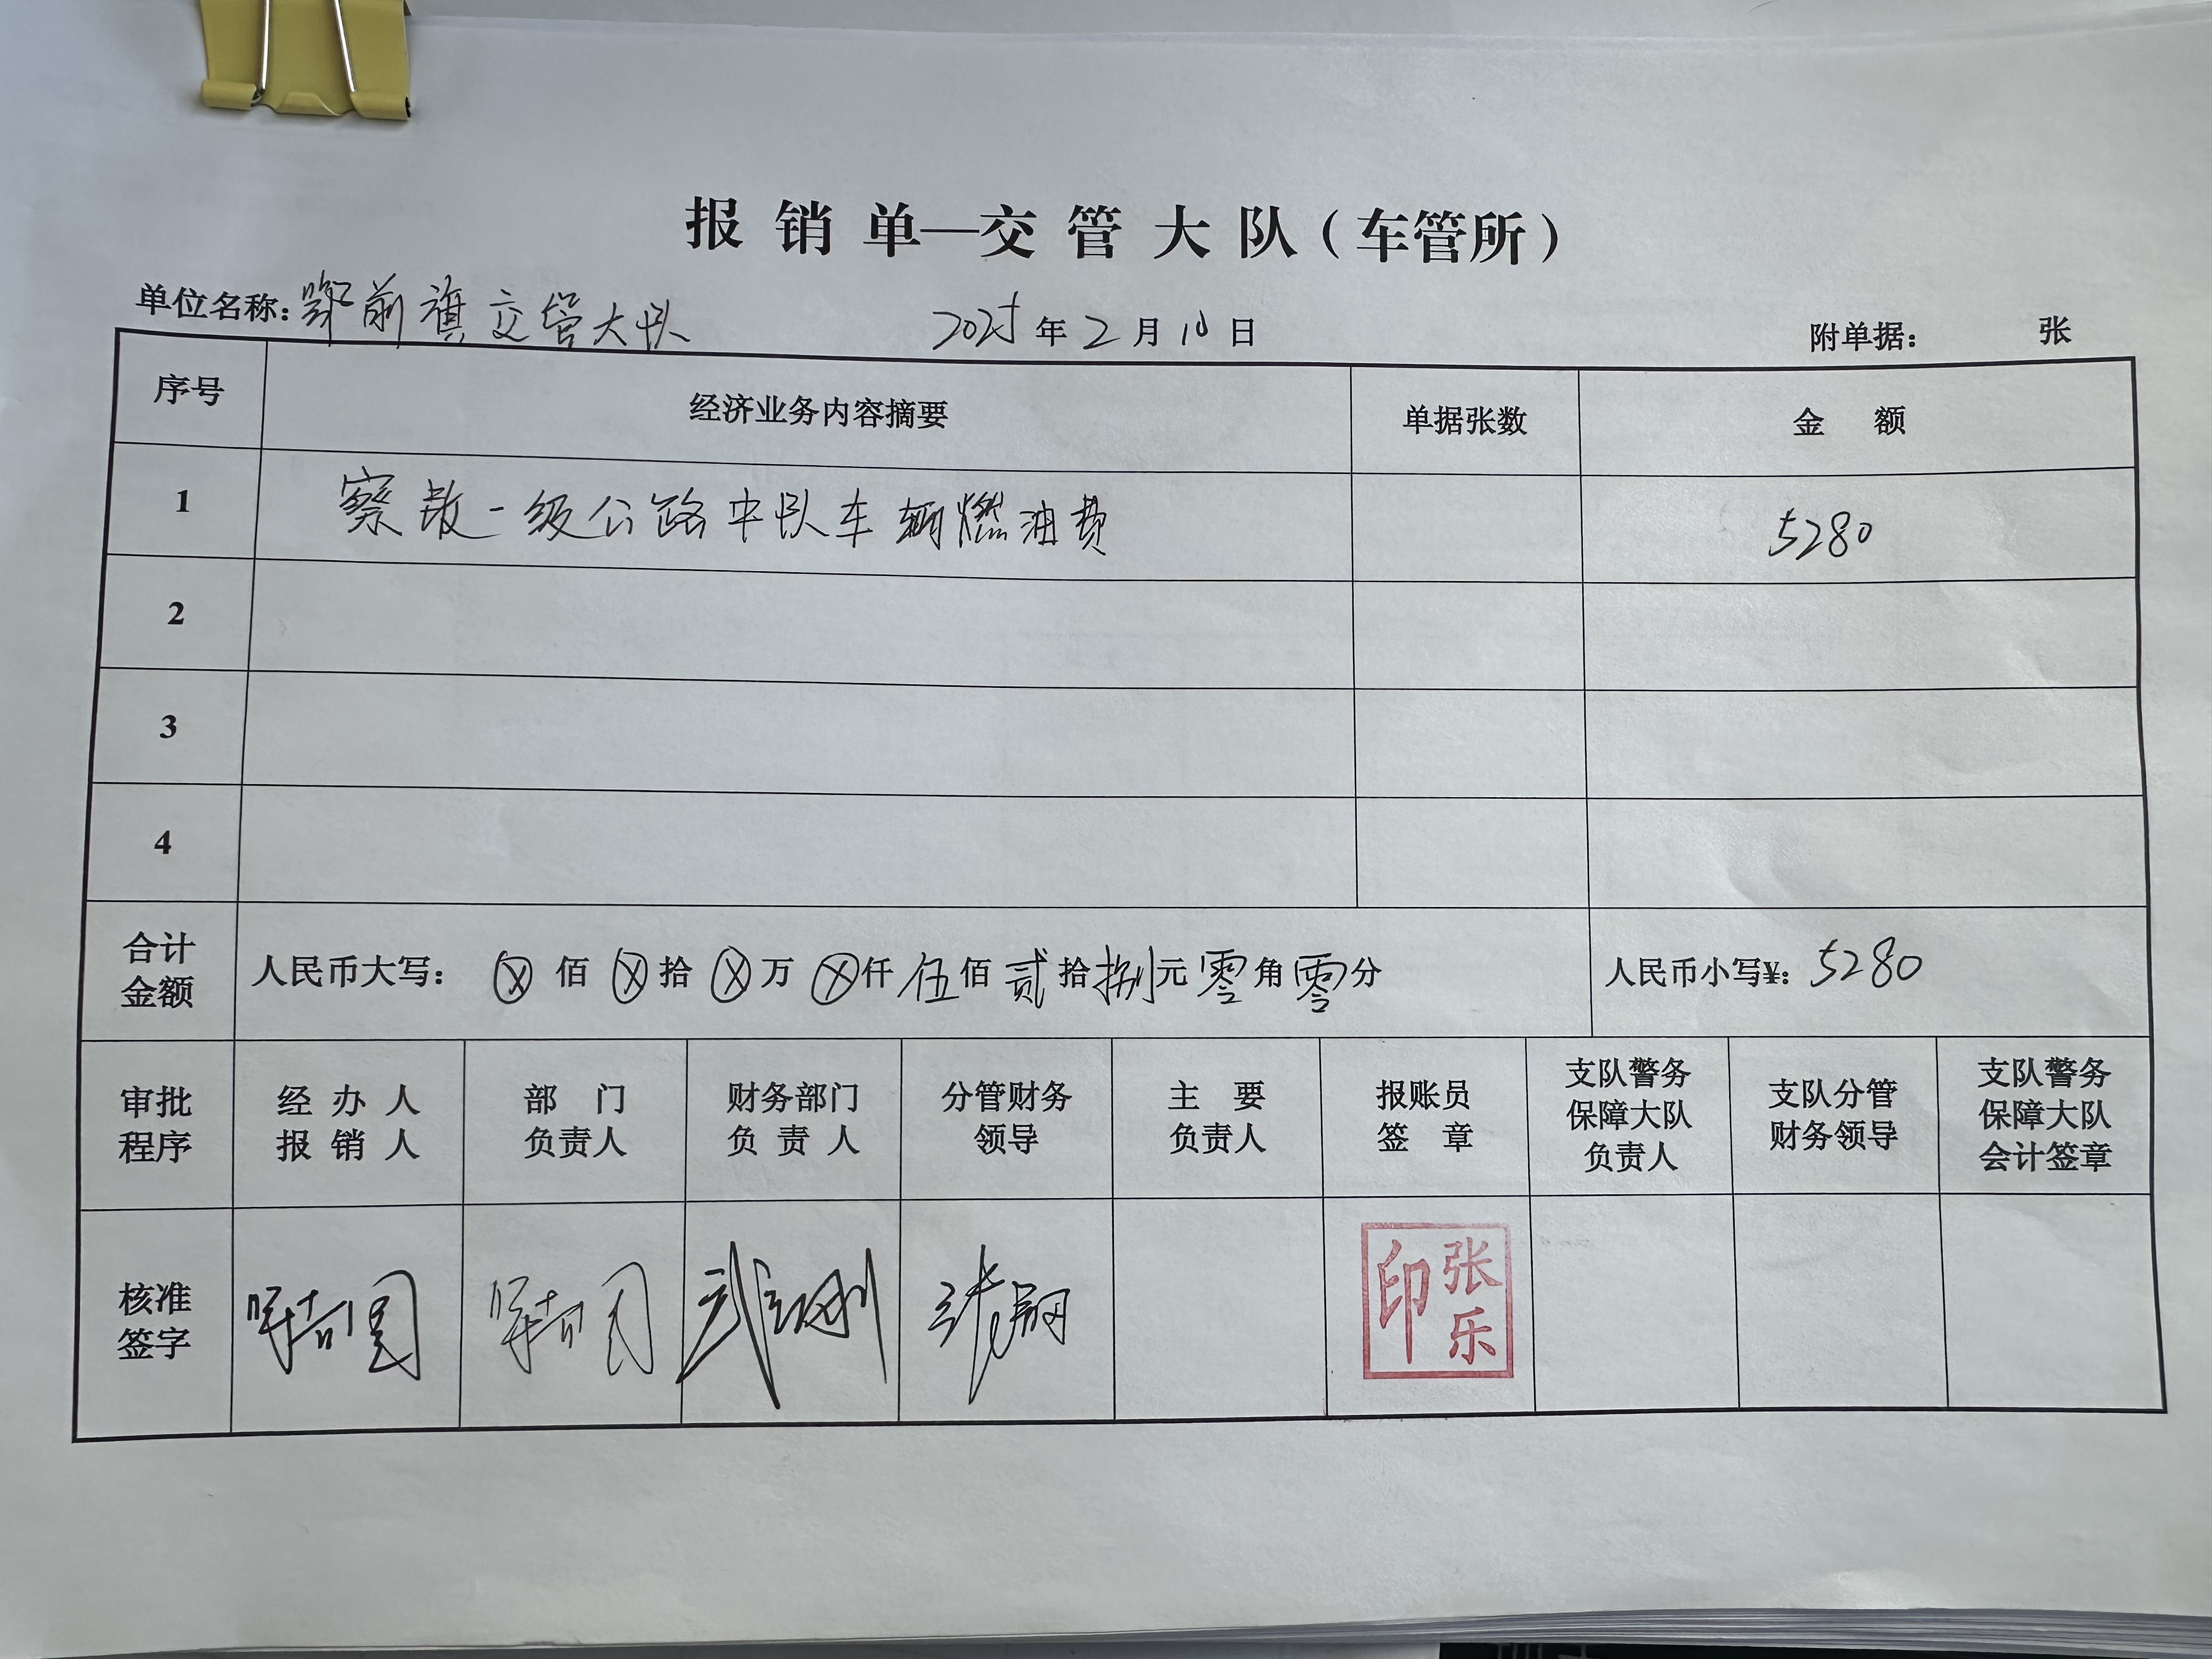 报销单—交管大队（车管所）
单位名称：鄂前旗交管大队 2025年2月10日 附单据： 张
序号 经济业务内容摘要 单据张数 金额
1 察敖一级公路中队车辆燃油费 5280
2
3
4
合计金额 人民币大写：ⓧ佰ⓧ拾ⓧ万ⓧ仟伍佰贰拾捌元零角零分 人民币小写¥：5280
审批程序 经办人报销人 部门负责人 财务部门负责人 分管财务领导 主要负责人 报账员签章 支队警务保障大队负责人 支队分管财务领导 支队警务保障大队会计签章
核准签字 张乐印